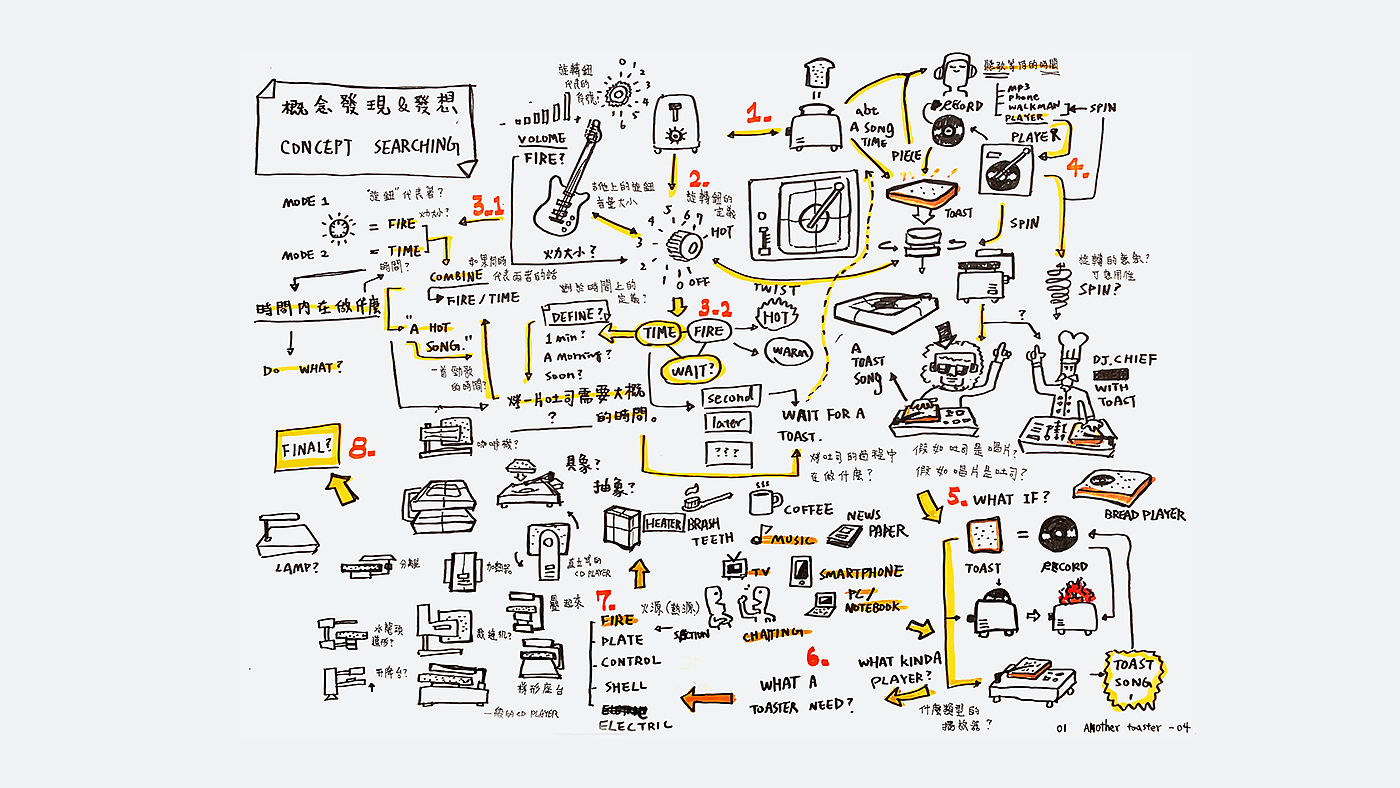 概念發現&發想
CONCEPT SEARCHING
旋轉鈕
代表的
0
1
2
3
4
5
6
- +
VOLUME
FIRE?
吉他上的旋鈕
音量大小
火力大小?
1.
abt
A SONG
TIME
PIECE
聽歌等待的時間
RECORD
MP3
Phone
WALKMAN
PLAYER
SPIN
PLAYER
4.
TOAST
SPIN
旋轉的意氣?
可應用性
SPIN?
2.
旋轉鈕的
定義
HOT
7
6
5
4
3
2
1
0 OFF
3.1
MODE 1
"旋鈕"代表著?
= FIRE
火力大小?
MODE 2
= TIME
時間?
COMBINE
如果同時
代表兩者的話
FIRE / TIME
時間內在做什麼
DO WHAT?
"A HOT
SONG."
一首勁歌
的時間?
對於時間上的
定義?
DEFINE?
1 min?
A Morning?
Soon?
烤一片吐司需要大概
?
的時間。
3.2
TIME
FIRE
WAIT?
TWIST
HOT
WARM
second
later
???
WAIT FOR A
TOAST.
烤吐司的過程中
在做什麼?
A
TOAST
SONG
?
DJ.CHIEF
WITH
TOACT
假如吐司是唱片?
假如唱片是吐司?
5. WHAT IF?
BREAD PLAYER
TOAST
=
RECORD
TOAST
SONG
!
WHAT KINDA
PLAYER?
什麼類型的
播放器?
6.
WHAT A
TOASTER NEED?
COFFEE
BRASH
TEETH
HEATER
MUSIC
NEWS
PAPER
TV
SMARTPHONE
PC/
NOTEBOOK
CHATTING
7.
火源(熱源)
FIRE
SECTION
PLATE
CONTROL
SHELL
ELECTRIC
具象?
抽象?
8.
FINAL?
咖啡機?
LAMP?
分離
加熱器
直立式的
CD PLAYER
疊起來
水龍頭
造形?
裁縫机?
升降台?
梯形座台
一般的CD PLAYER
01 ANother toaster -04